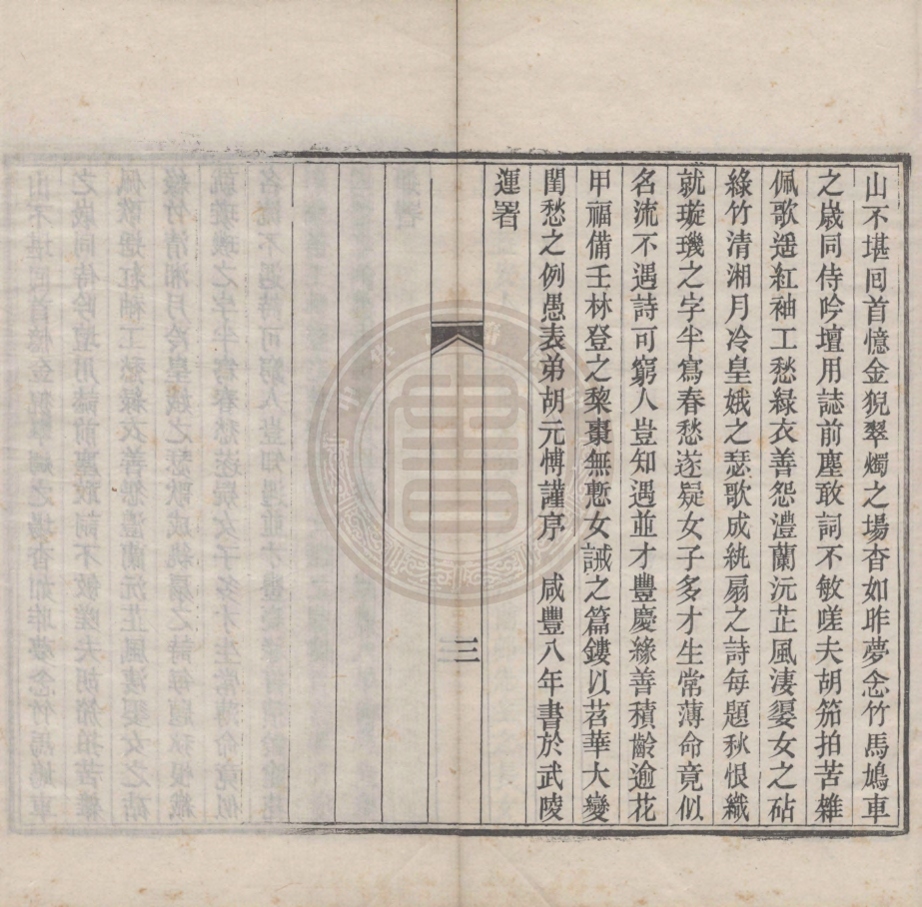 山不堪囘首憶金猊翠燭之場杳如昨夢念竹馬鳩車
之嵗同侍吟壇用誌前塵敢詞不敏嗟夫胡笳拍苦雜
佩歌遥紅袖工愁綠衣善怨澧蘭沅芷風淒嬃女之砧
綠竹清湘月冷皇娥之瑟歌成紈扇之詩每題秋恨織
就璇璣之字半寫春愁遂疑女子多才生常薄命竟似
名流不遇詩可窮人豈知遇並才豐慶緣善積齡逾花
甲福備壬林登之棃棗無慙女誡之篇鏤以苕華大變
閨愁之例愚表弟胡元愽謹序　咸豐八年書於武陵
運署
三